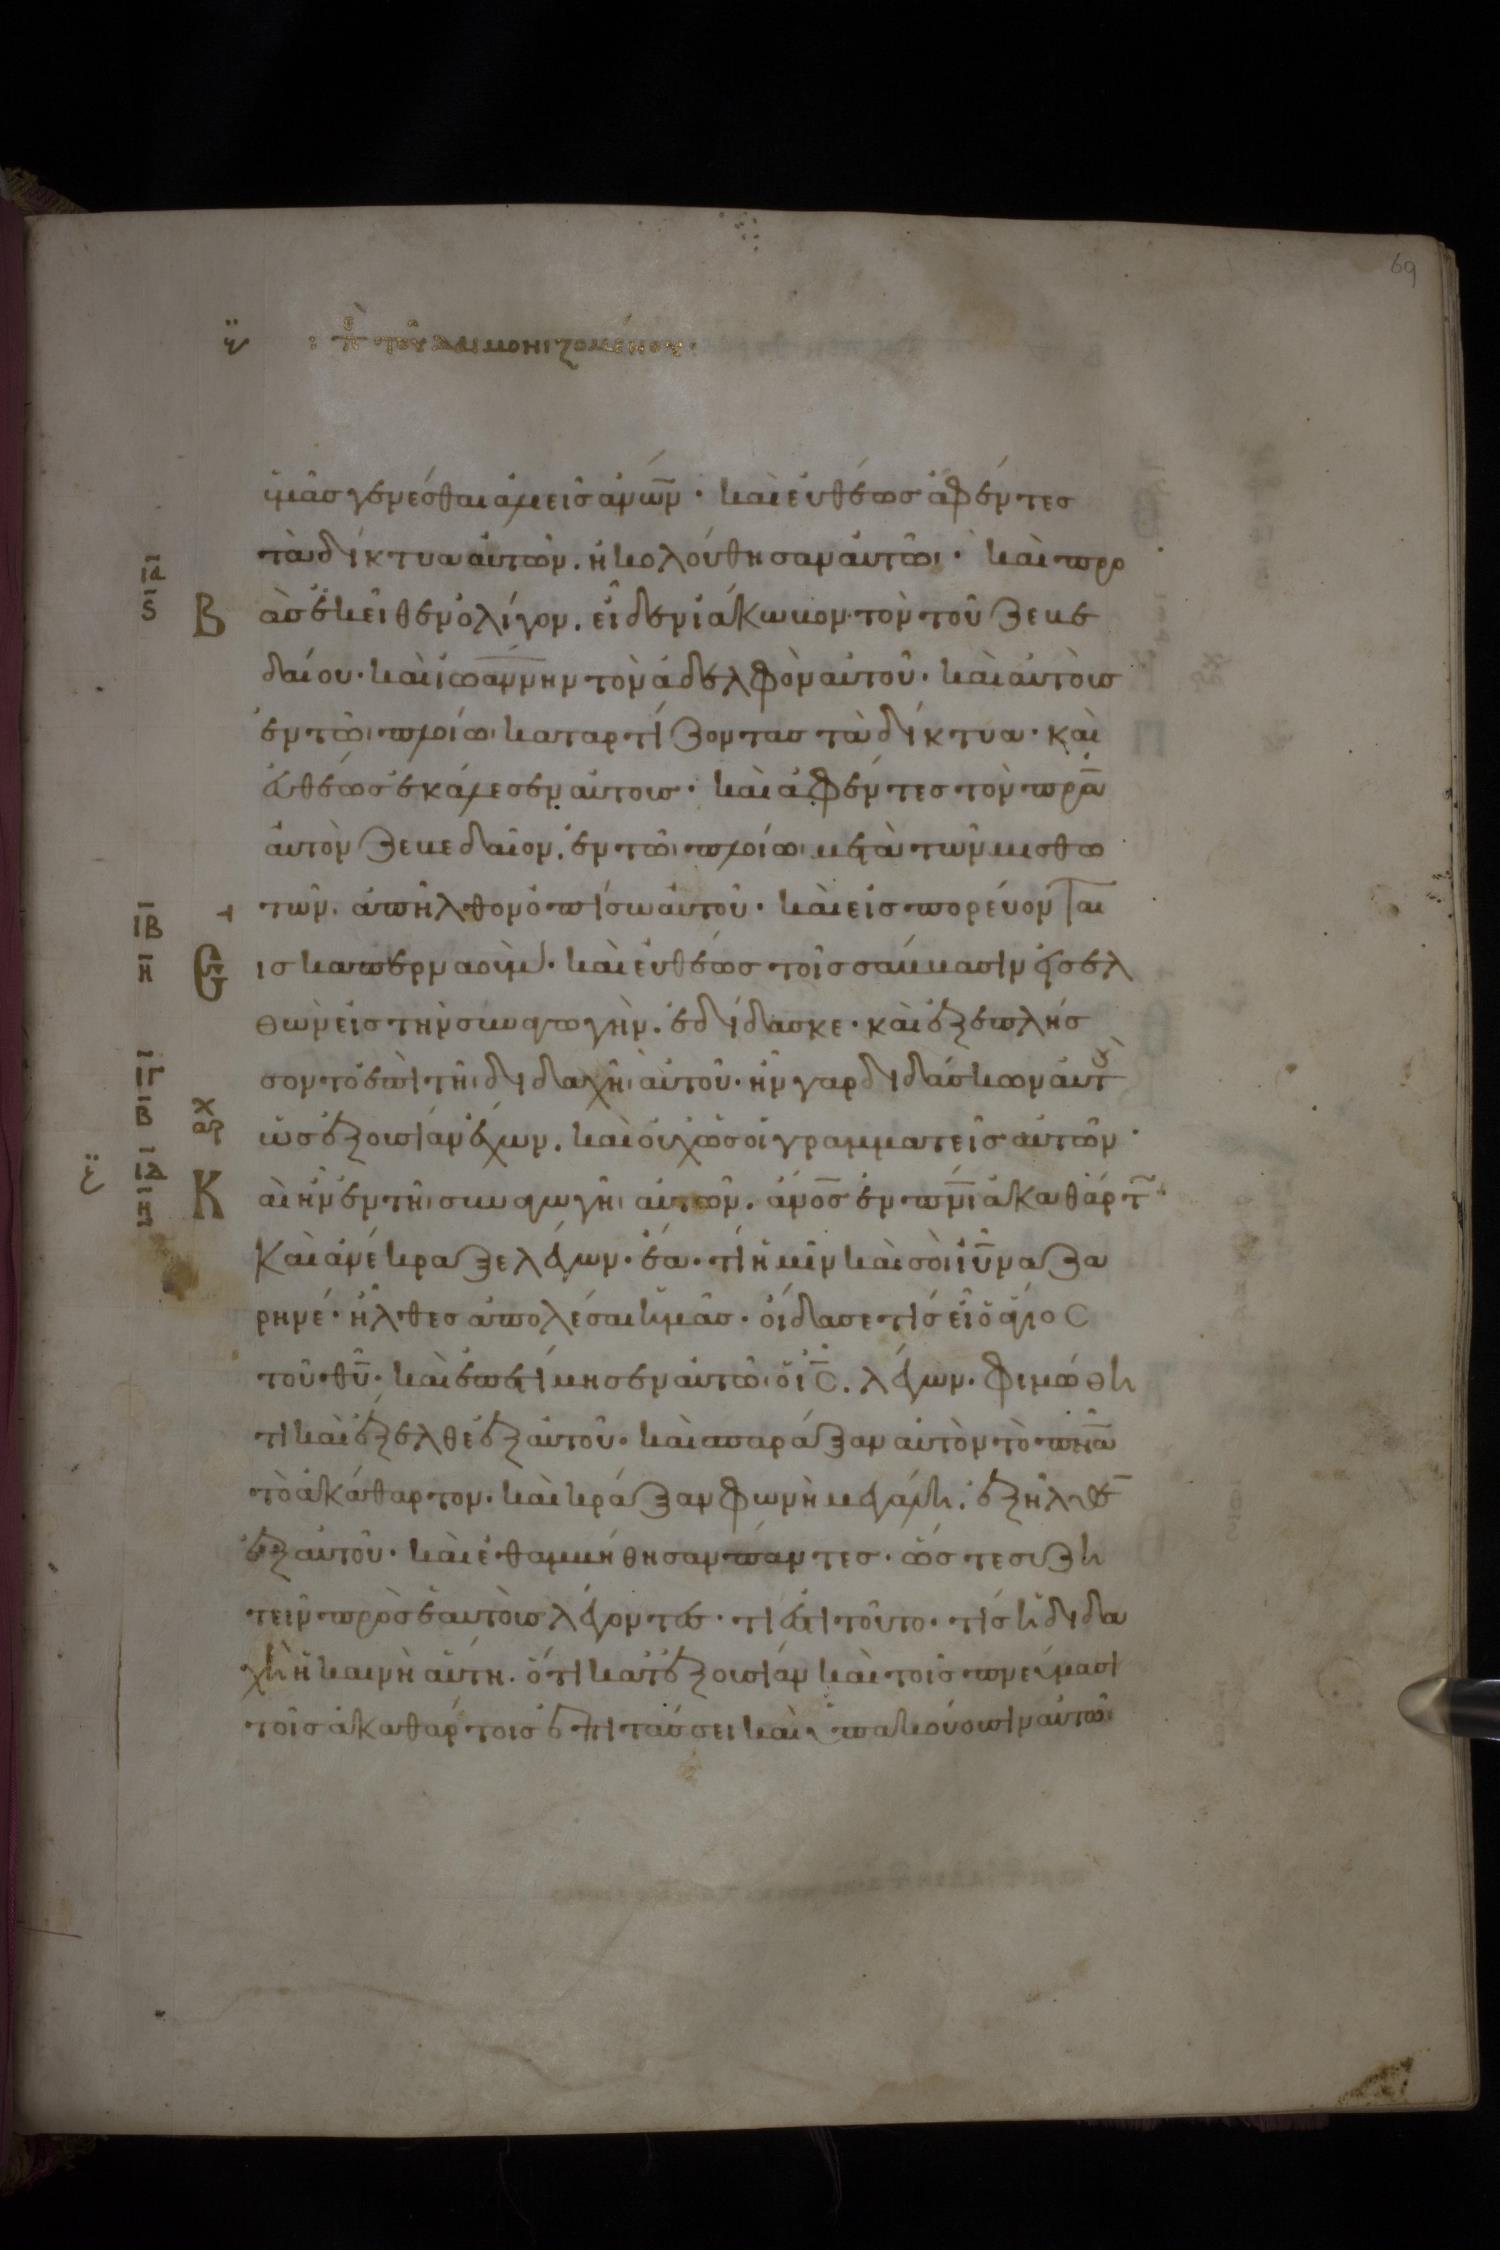 69
α̈ : πε του δαιμονιζομένου·
ὑμᾶσ γενέσθαι ἁλιεῖσ ἀν̅ω̅ν̅· καὶ εὐθέωσ ἀφέντεσ
τὰ δίκτυα αὐτῶν. ἠκολούθησαν αὐτῶι· καὶ προ
ΙΑ
Ϛ Β ὰσ ἐκεῖθεν ὀλίγον. εἶδεν ἰάκωβον τὸν τοῦ ζεβε
δαίου· καὶ ἰωάννην τὸν ἀδελφὸν αὐτοῦ· καὶ αὐτοὺσ
ἐν τῶι πλοίωι καταρτίζοντασ τὰ δίκτυα· καὶ
εὐθέωσ ἐκάλεσεν αὐτουσ· καὶ ἀφέντεσ τὸν πρ̅α̅
αὐτὸν ζεβεδαῖον. ἐν τῶι πλοίωι μετὰ τῶν μισθω
ΙΒ τῶν. ἀπῆλθον ὀπίσω αὐτοῦ· καὶ εἰσπορεύονται
Η Ε ισ καπερναοὺμ· καὶ εὐθέωσ τοῖσ σάββασιν εἰσελ
θὼν εἰσ τὴν συναγωγὴν. ἐδίδασκε· καὶ ἐξεπλήσ
ΙΓ σοντο ἐπὶ τῆι διδαχῆι αὐτοῦ· ἦν γαρ διδάσκων αὐτου
Β αρχ ὡσ ἐξουσίαν ἔχων. καὶ οὐχ ὡσ οἱ γραμματεῖσ αὐτῶν·
ΙΔ
Η Κ αὶ ἦν ἐν τῆι συναγωγῆι αὐτῶν. ἀν̅ο̅σ̅ ἐν πν̅ι̅ ἀκαθάρτ
Καὶ ἀνέκραξε λέγων· ἔα· τί ἡμῖν καὶ σοὶ ἰ̅υ̅ ναζα
ρηνέ· ἦλθεσ ἀπολέσαι ἡμᾶσ· οἶδα σε τίσ εἶ ὁ ἅγιοσ
τοῦ θ̅υ̅· καὶ ἐπετίμησεν αὐτῶι ὁ ι̅σ̅. λέγων· φιμώθη
τι καὶ ἔξελθε ἐξ αὐτοῦ· καὶ σπαράξαν αὐτὸν τὸ πν̅α̅
τὸ ἀκάθαρτον. καὶ κράξαν φωνὴ μεγάλη. ἐξῆλθε
ἐξ αὐτοῦ· καὶ ἐθαμβήθησαν πάντεσ· ὥστε συζη
τεῖν πρὸσ ἑαυτοὺσ λέγοντεσ· τί ἐστι τοῦτο· τίσ ἡ διδα
χὴ ἡ καινὴ αὕτη. ὅτι κατ ἐξουσίαν καὶ τοῖσ πνεύμασι
τοῖσ ἀκαθάρτοισ ἐπιτάσσει καὶ ὑπακούουσιν αὐτῶι·